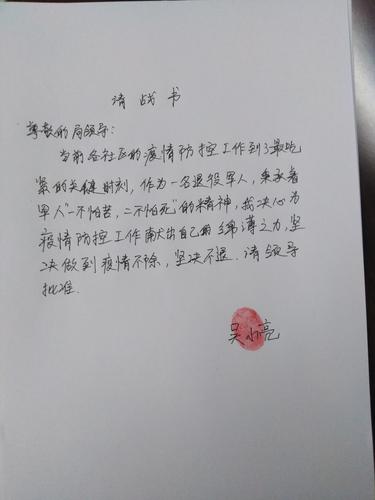 请战书
尊敬的局领导:
当前各社区的疫情防控工作到了最吃
紧的关键时刻,作为一名退役军人,秉承着
军人“一不怕苦,二不怕死”的精神,我决心为
疫情防控工作献出自己的绵薄之力,坚
决做到疫情不除,坚决不退.请领导
批准.
吴小亮